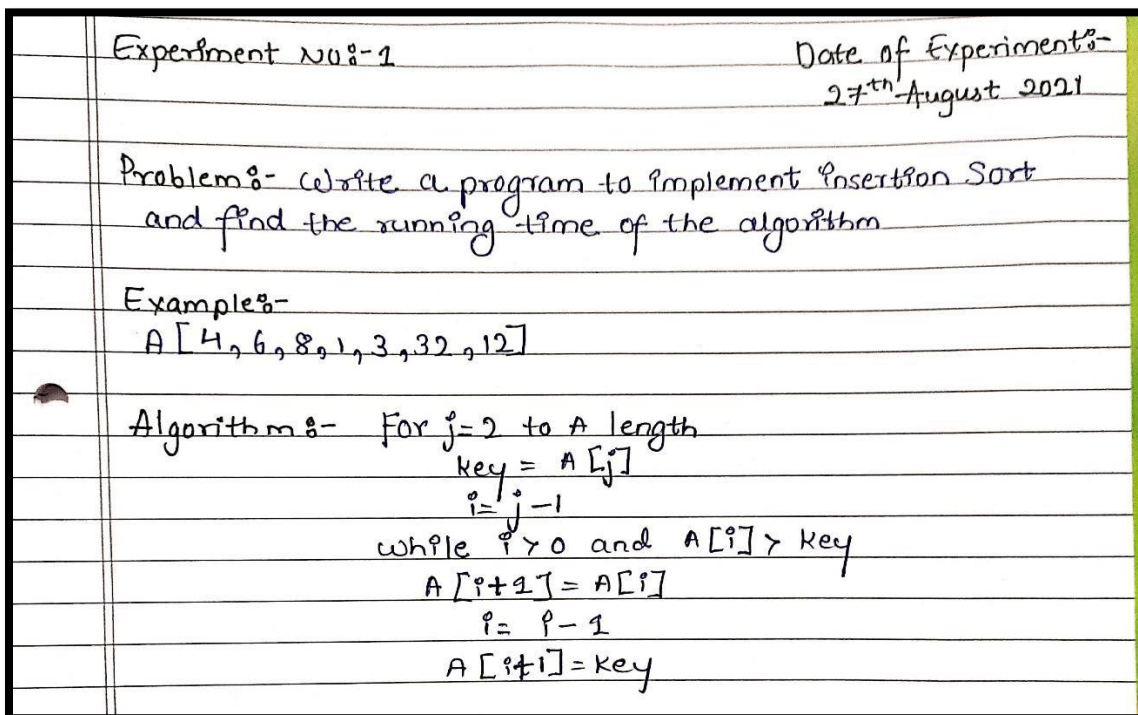 Experiment No:-1
Date of Experiment:-
27th August 2021
Problem:- Write a program to implement insertion Sort
and find the running time of the algorithm
Example:-
A [4, 6, 8, 1, 3, 32, 12]
Algorithm:- For j=2 to A length
key = A [j]
i= j-1
while i>0 and A[i] > key
A [i+1] = A[i]
i= i-1
A [i+1] = key